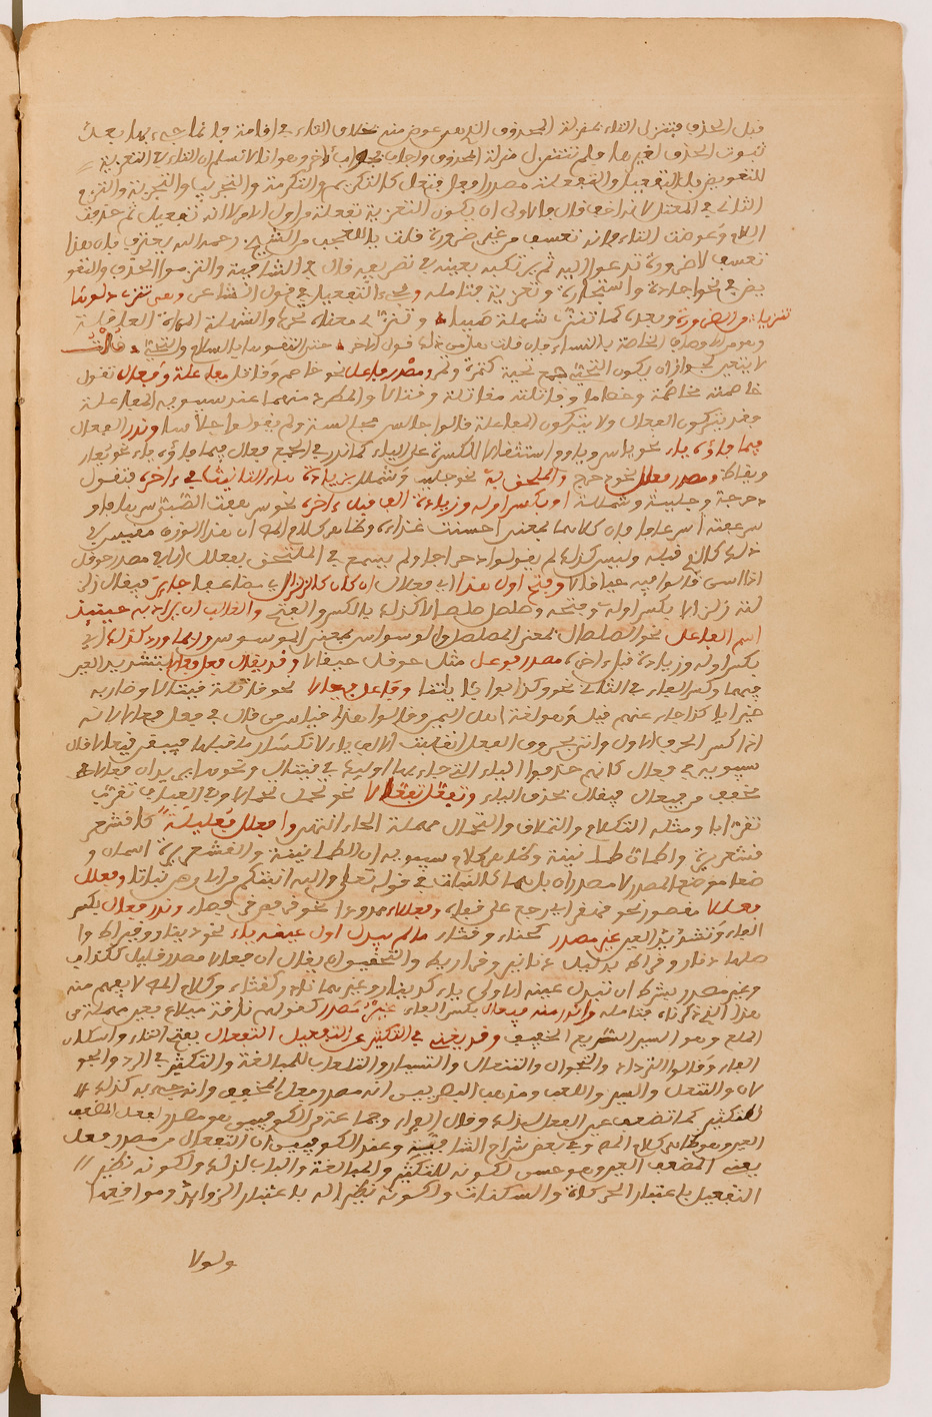 قبل الحذف فتنزل التاء بمنزلة المحذوف الذي هو عوض منه بخلاف التاء في اقامة فانما جيء بها بعد
ثبوت الحذف لغيرها فلم تتنزل منزلة المحذوف واجاب بجواب اخر وهو انا لا نسلم ان التاء في التعزية
للتعويض بل التفعيل والتفعلة مصدرا فعل كالتكريم والتكرمة والتجريب والتجربة والتزم
الثاني في المعتل قال والاولى ان يكون التعزية تفعلة من اول الامر لا انه تفعيل ثم حذفت
الياء وعوضت التاء فانه تعسف من غير ضرورة قلت يا للعجب من الشيخ رحمه الله يعترف بان هذا
تعسف لا ضرورة تدعو اليه ثم يرتكبه بعينه في تصريفه قال في الشافية والتزموا الحذف والتعو
يض في نحو اجازة واستجازة وتعزية فتامله ومجيء التفعيل في قول الشاعر وهي تنزي دلوها
تنزيا من الضرورة وبعده كما تنزي شهلة صبيا وتنزي معناه تحرك والشهلة المراة العاقلة
وهو من الاوصاف الخاصة بالنساء فان قلت
لا يتعين لجواز ان يكون التحي جمع تحية كتمرة وتمر ومصدر فاعل نحو خاصم وقاتل مفاعلة وفعال تقول
خاصمته مخاصمة وخصاما وقاتلته مقاتلة وقتالا والمطرد منهما عند سيبويه المفاعلة
فقد يتركون الفعال ولا يتركون المفاعلة قالوا جالس مجالسة ولم يقولوا جلاسا وندر الفعال
فيما فاؤه ياء نحو ياسر وياوم استثقالا للكسرة على الياء كما ندر في الجمع فعال فيما فاؤه ياء نحو يعار
ويقاظ ومصدر فعلل نحو دحرج والملحق به نحو جلبب وشملل بزيادة هاء التانيث في ءاخره فتقول
دحرجة وجلببة وشمللة او بكسر اوله وزيادة الف قبل ءاخره نحو سرهفت الصبي سرهافا و
سرهفة اسرهافا فان كلاهما بمعنى احسنت غذاءه وظاهر كلام المص ان هذا الوزن مقيس في
ذلك كالذي قبله وليس كذلك لم يقولوا دحراجا ولم يسمع في الملحق بفعلل الا في مصدر حوقل
اذا اسن قالوا فيه حيقالا وفتح اول هذا اي فعلال ان كان كالزلزال مضاعفا جايز فيقال زلز
لته زلزالا بكسر اوله وفتحه وصلصل صلصالا كذلك بالكسر والفتح والغالب ان يراد به حينيذ
اسم الفاعل نحو الصلصال بمعنى المصلصل والوسواس بمعنى الموسوس وربما ورد كذلك اي
بكسر اوله وزيادة قبل اخره مصدر فوعل مثل حوقل حيقالا وقد يقال فعل فعالا بتشديد العين
فيهما وكسر الفاء في الثاني نحو وكذبوا باياتنا وفاعل فيعالا نحو قاتلته قيتالا وضاربه
ضيرابا كذا جاء عنهم قيل وهو لغة اهل اليمن وقالوا هذا قياس من قال في فعل فعالا لانه
اذا كسر الحرف الاول واتى بحروف الفعل انقلبت الالف ياء لانكسار ما قبلها فيبقى فيعالا قال
سيبويه في فعال كانهم حذفوا الياء التي جاء بها اوليك في قيتال ونحوه اي يريد ان فعالا
مخفف من فيعال فيقال بحذف الياء وتفعل تفعالا نحو تحمل تحمالا
تقرابا ومثله التكلام والتملاق والتحمال مهملة الحاء انتهى وافعلل فعليلة كاقشعر
قشعريرة واطمان طمانينة وظاهر كلام سيبويه ان الطمانينة والقشعريرة اسمان و
ضعا موضع المصدر لا مصدران بل هما كالنبات في قوله تعالى والله انبتكم من الارض نباتا وفعلل
فعللا مقصور نحو قهقر اي رجع على قفاه وفعللاء ممدودا نحو قرفص قرفصاء وندر فعال بكسر
الفاء وتشديد العين غير مصدر كحناء وقثاء ما لم يبدل اول عينيه ياء نحو دينار وقيراط وا
صلهما دنار وقراط بدليل دنانير وقراريط والتحقيق ان يقال ان فعالا مصدر قليل ككذاب
وغير مصدر بشرط ان تبدل عينه الاولى ياء كدينار وغيرها نادر كقثاء وكلام المص لا يفهم منه
هذا الذي ذكرناه فتامله واندر منه فيعال بكسر الفاء غير مصدر كقولهم ناقة ميلاع بعين مهملة من
الملع وهو السير السريع الخفيف وقد يغني في التكثير عن التفعيل التفعال بفتح التاء واسكان
الفاء وقالوا الترداد والتجوال والتقتال والتسيار والتلعاب للمبالغة والتكثير في الرد والجو
لان والقتل والسير واللعب ومذهب البصريين انه مصدر فعل المخفف وانه جيء به كذلك
للتكثير كما تضعف عين الفعل لذلك وقال الفراء وجماعة من الكوفيين هو مصدر لفعل المضعف
العين وهو ظاهر كلام المص وفي بعض شراح الشافية وعند الكوفيين ان التفعال من مصدر فعل
يعني المضعف العين وهو حسن لكونه للتكثير والمبالغة والباب لذلك ولكونه نظير
التفعيل باعتبار الحركات والسكنات ولكونه نظيرا له باعتبار الزوايد وموافقهما
ولولا